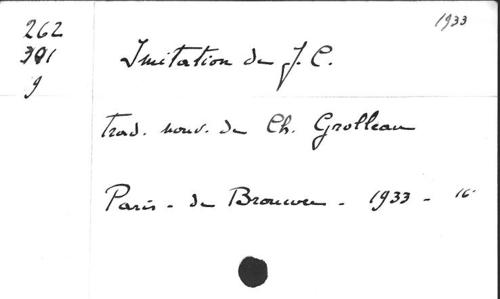 1933
262
391
9
Imitation de J. C.
Trad. nouv. de Ch. Grolleau
Paris - de Brouwer - 1933 - 16°